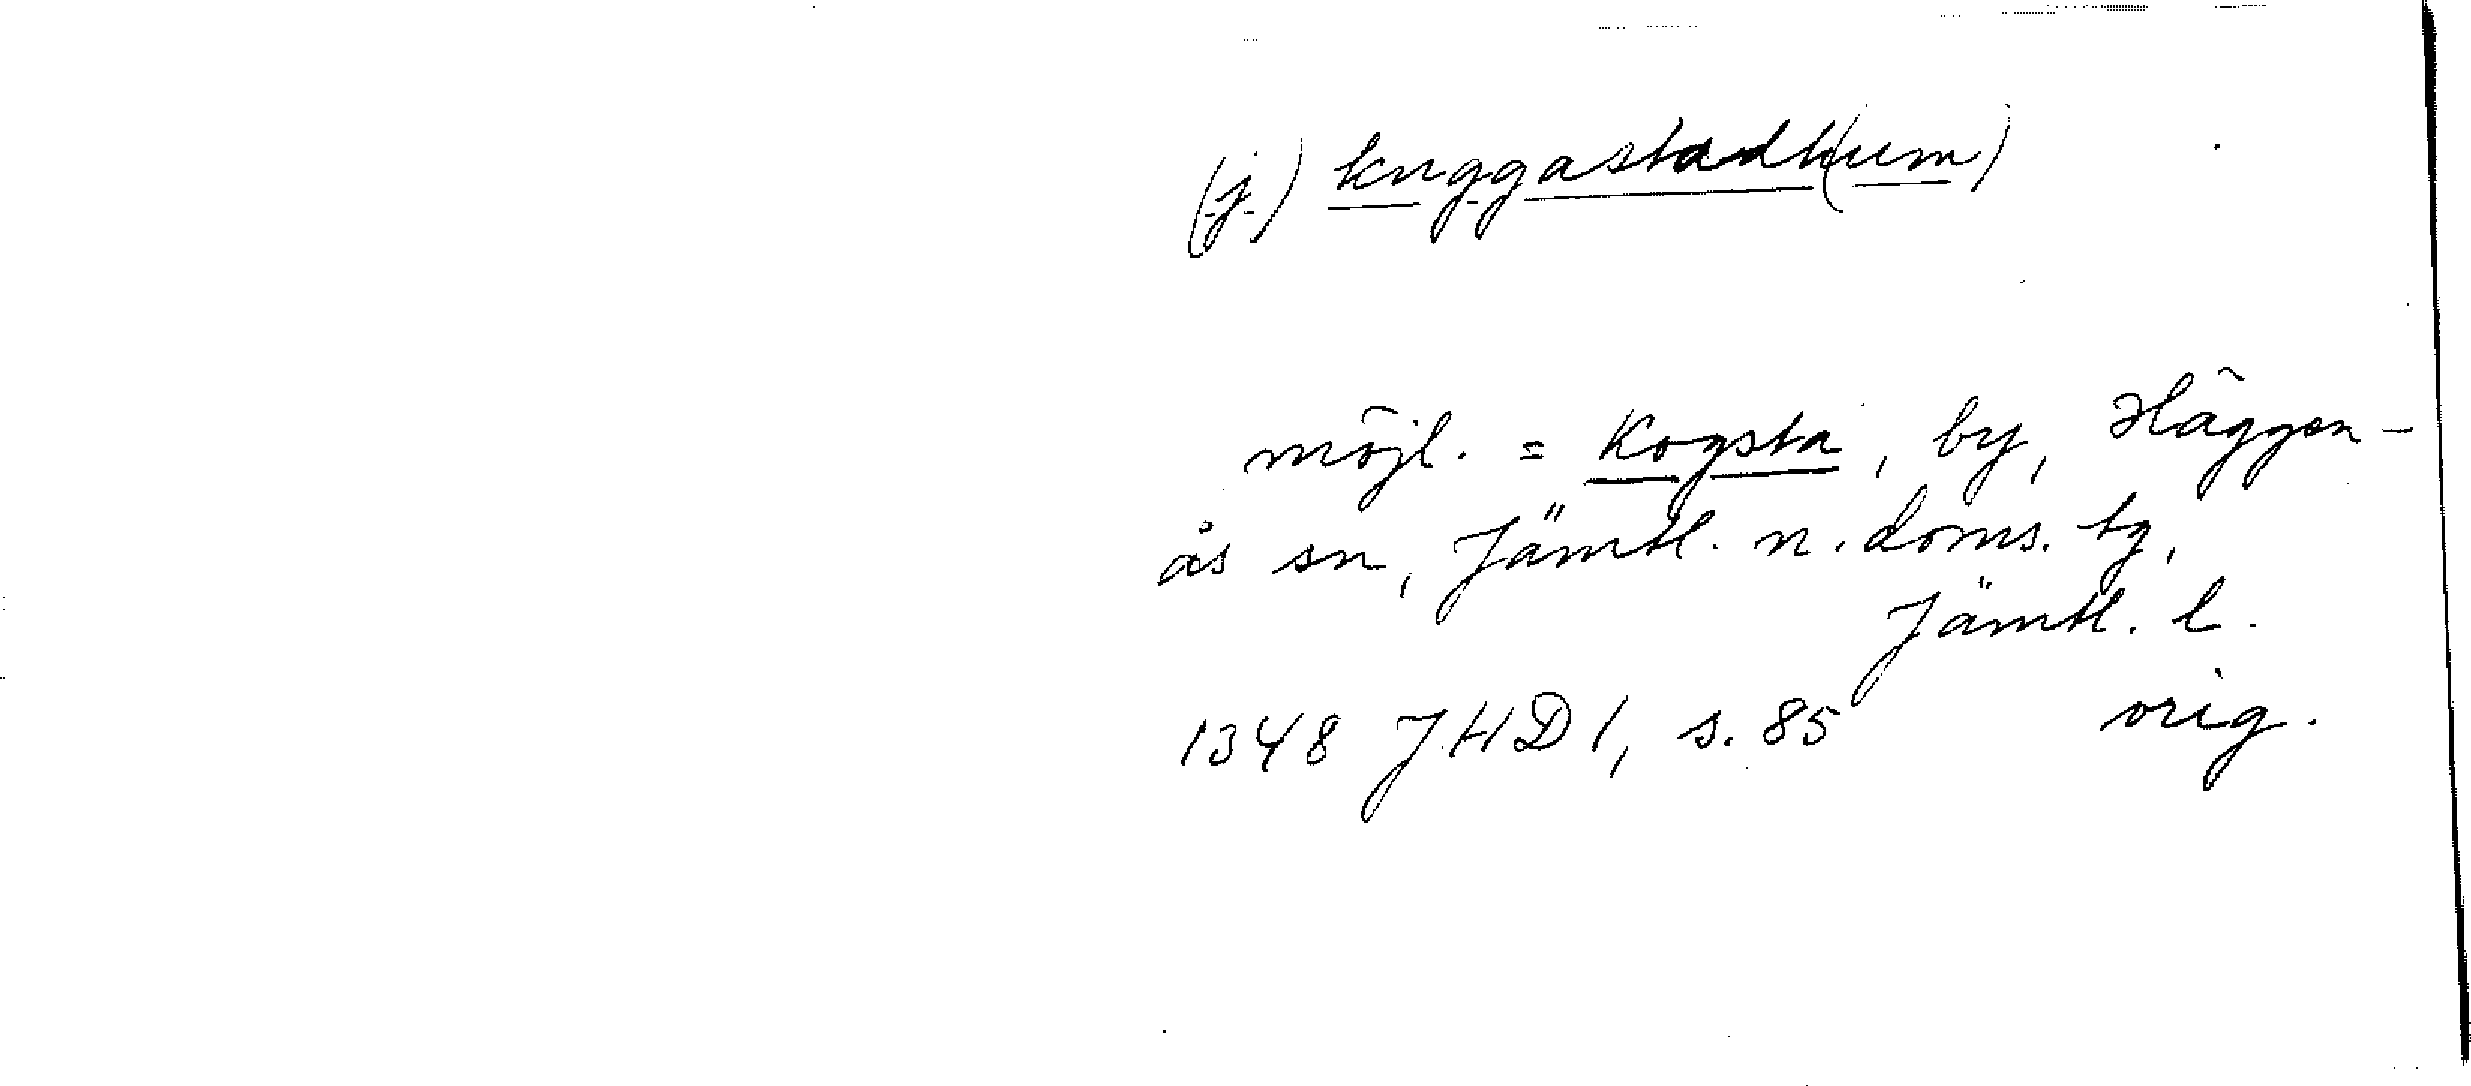 (j.) kuggastadh(um)
möjl. = Kogsta, by, Häggen-
ås sn, Jämtl. n. doms. tg,
Jämtl. l.
1348 JHD 1, s. 85 orig.